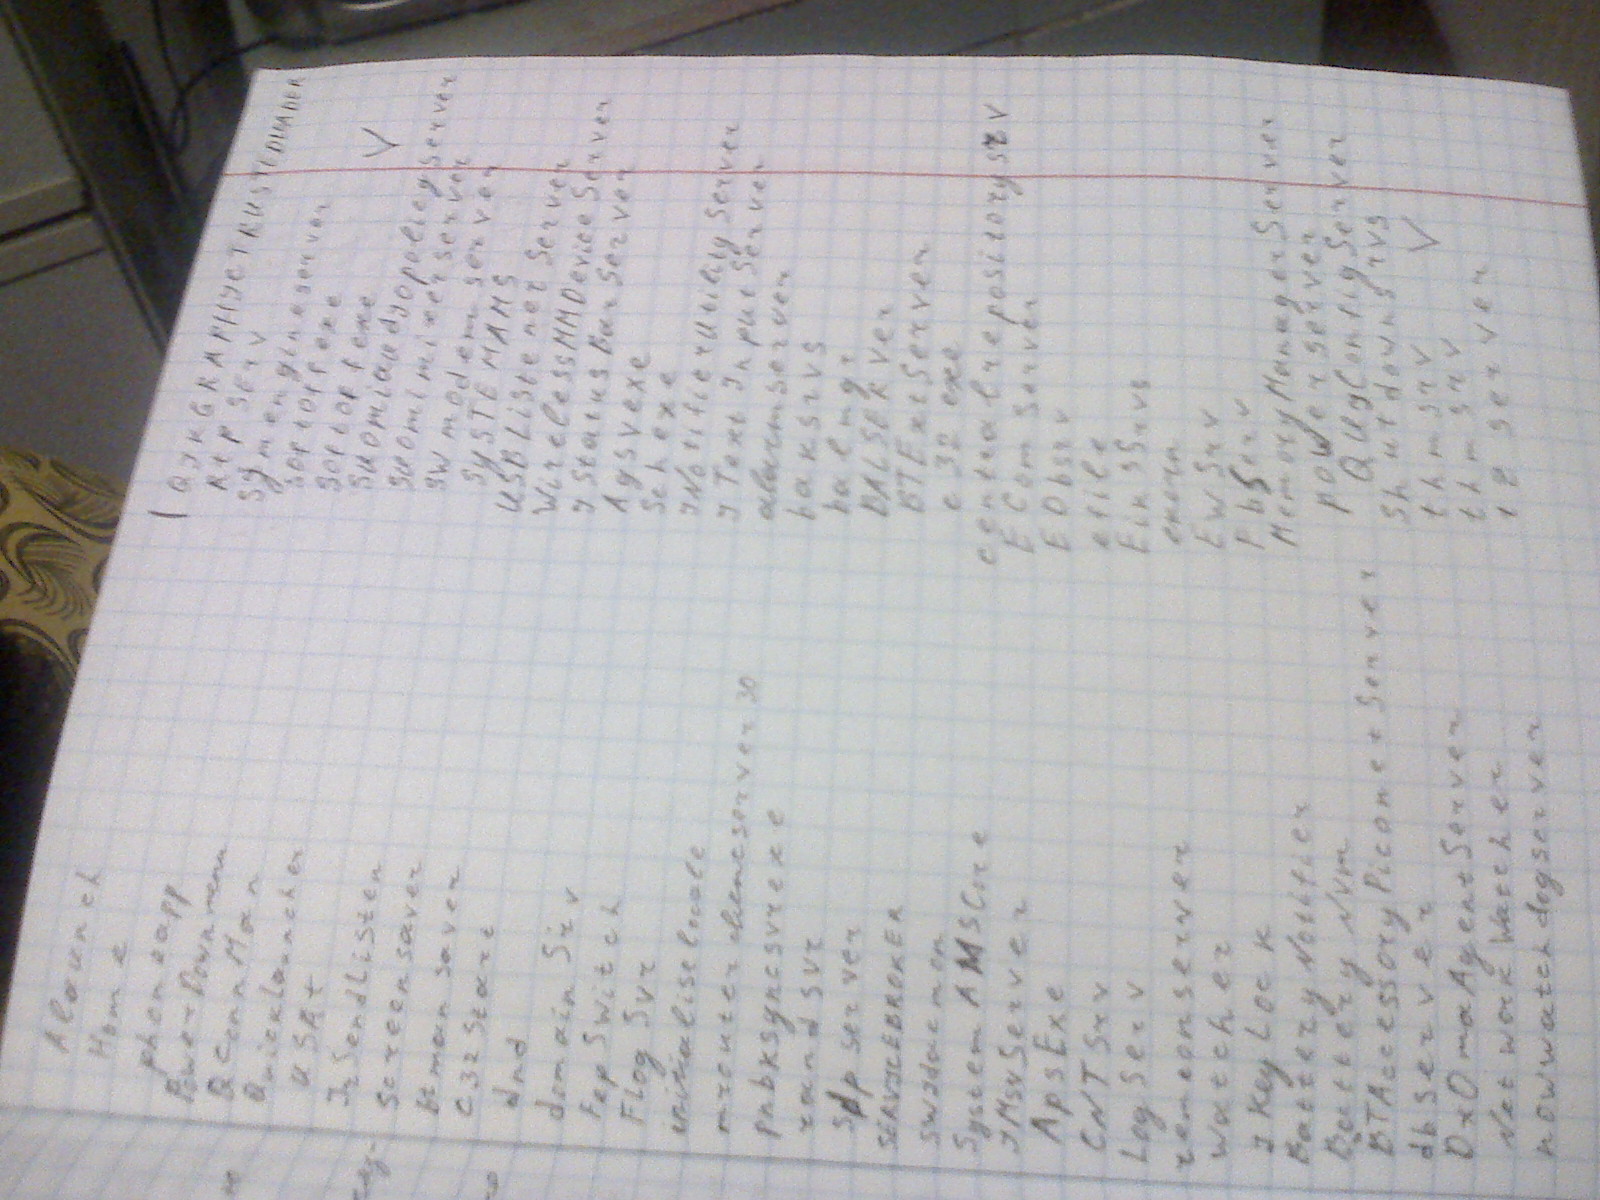 Alaunch
Home
phoneapp
Power-Downmen
QConnMan
Quicklauncher
USRt
IrSendListen
Screensaver
btmansaver
C32Start
dnd
domainSrv
FepSwitch
FlogSvr
initialiselocale
mrouteragencserver30
pnbksyncsvrexe
randsvr
SdpServer
SERVICEBROKER
SWIdaemon
SystemAMSCore
IMSvServer
ApsExe
CNTSrv
LogServ
remconserver
Watcher
IKeyLock
BatteryNotifier
BatteryNVm
BTAccessoryPiconetServer
dbServer
DxOmaAgentServer
NetworkWatcher
nowwatchdogserver
QIKGRAPHICTRUSTEDLOADER
RtpServ
Symengineserver
SofioffexE
Soflof fexe
SUOmiaudiopolicyServer
SUOmimixerServer
SW modemserver
SySTEMAMS
USBListenerServer
WirelessMMDeviceServer
IStatusBarServer
Agsvexe
Schexe
INotifierUtilityServer
ITextInputServer
alarmserver
baksrvs
balmgr
DALSERver
BTExtServer
c32exe
centralrepositorysrv
EComserver
EDbsrv
efile
EikSSrvs
ekern
EWSrv
PbServ
MemoryManagerServer
powerserver
QUIyConfigServer
Shutdownsrvs
thmsrv
thmsrv
tzserver